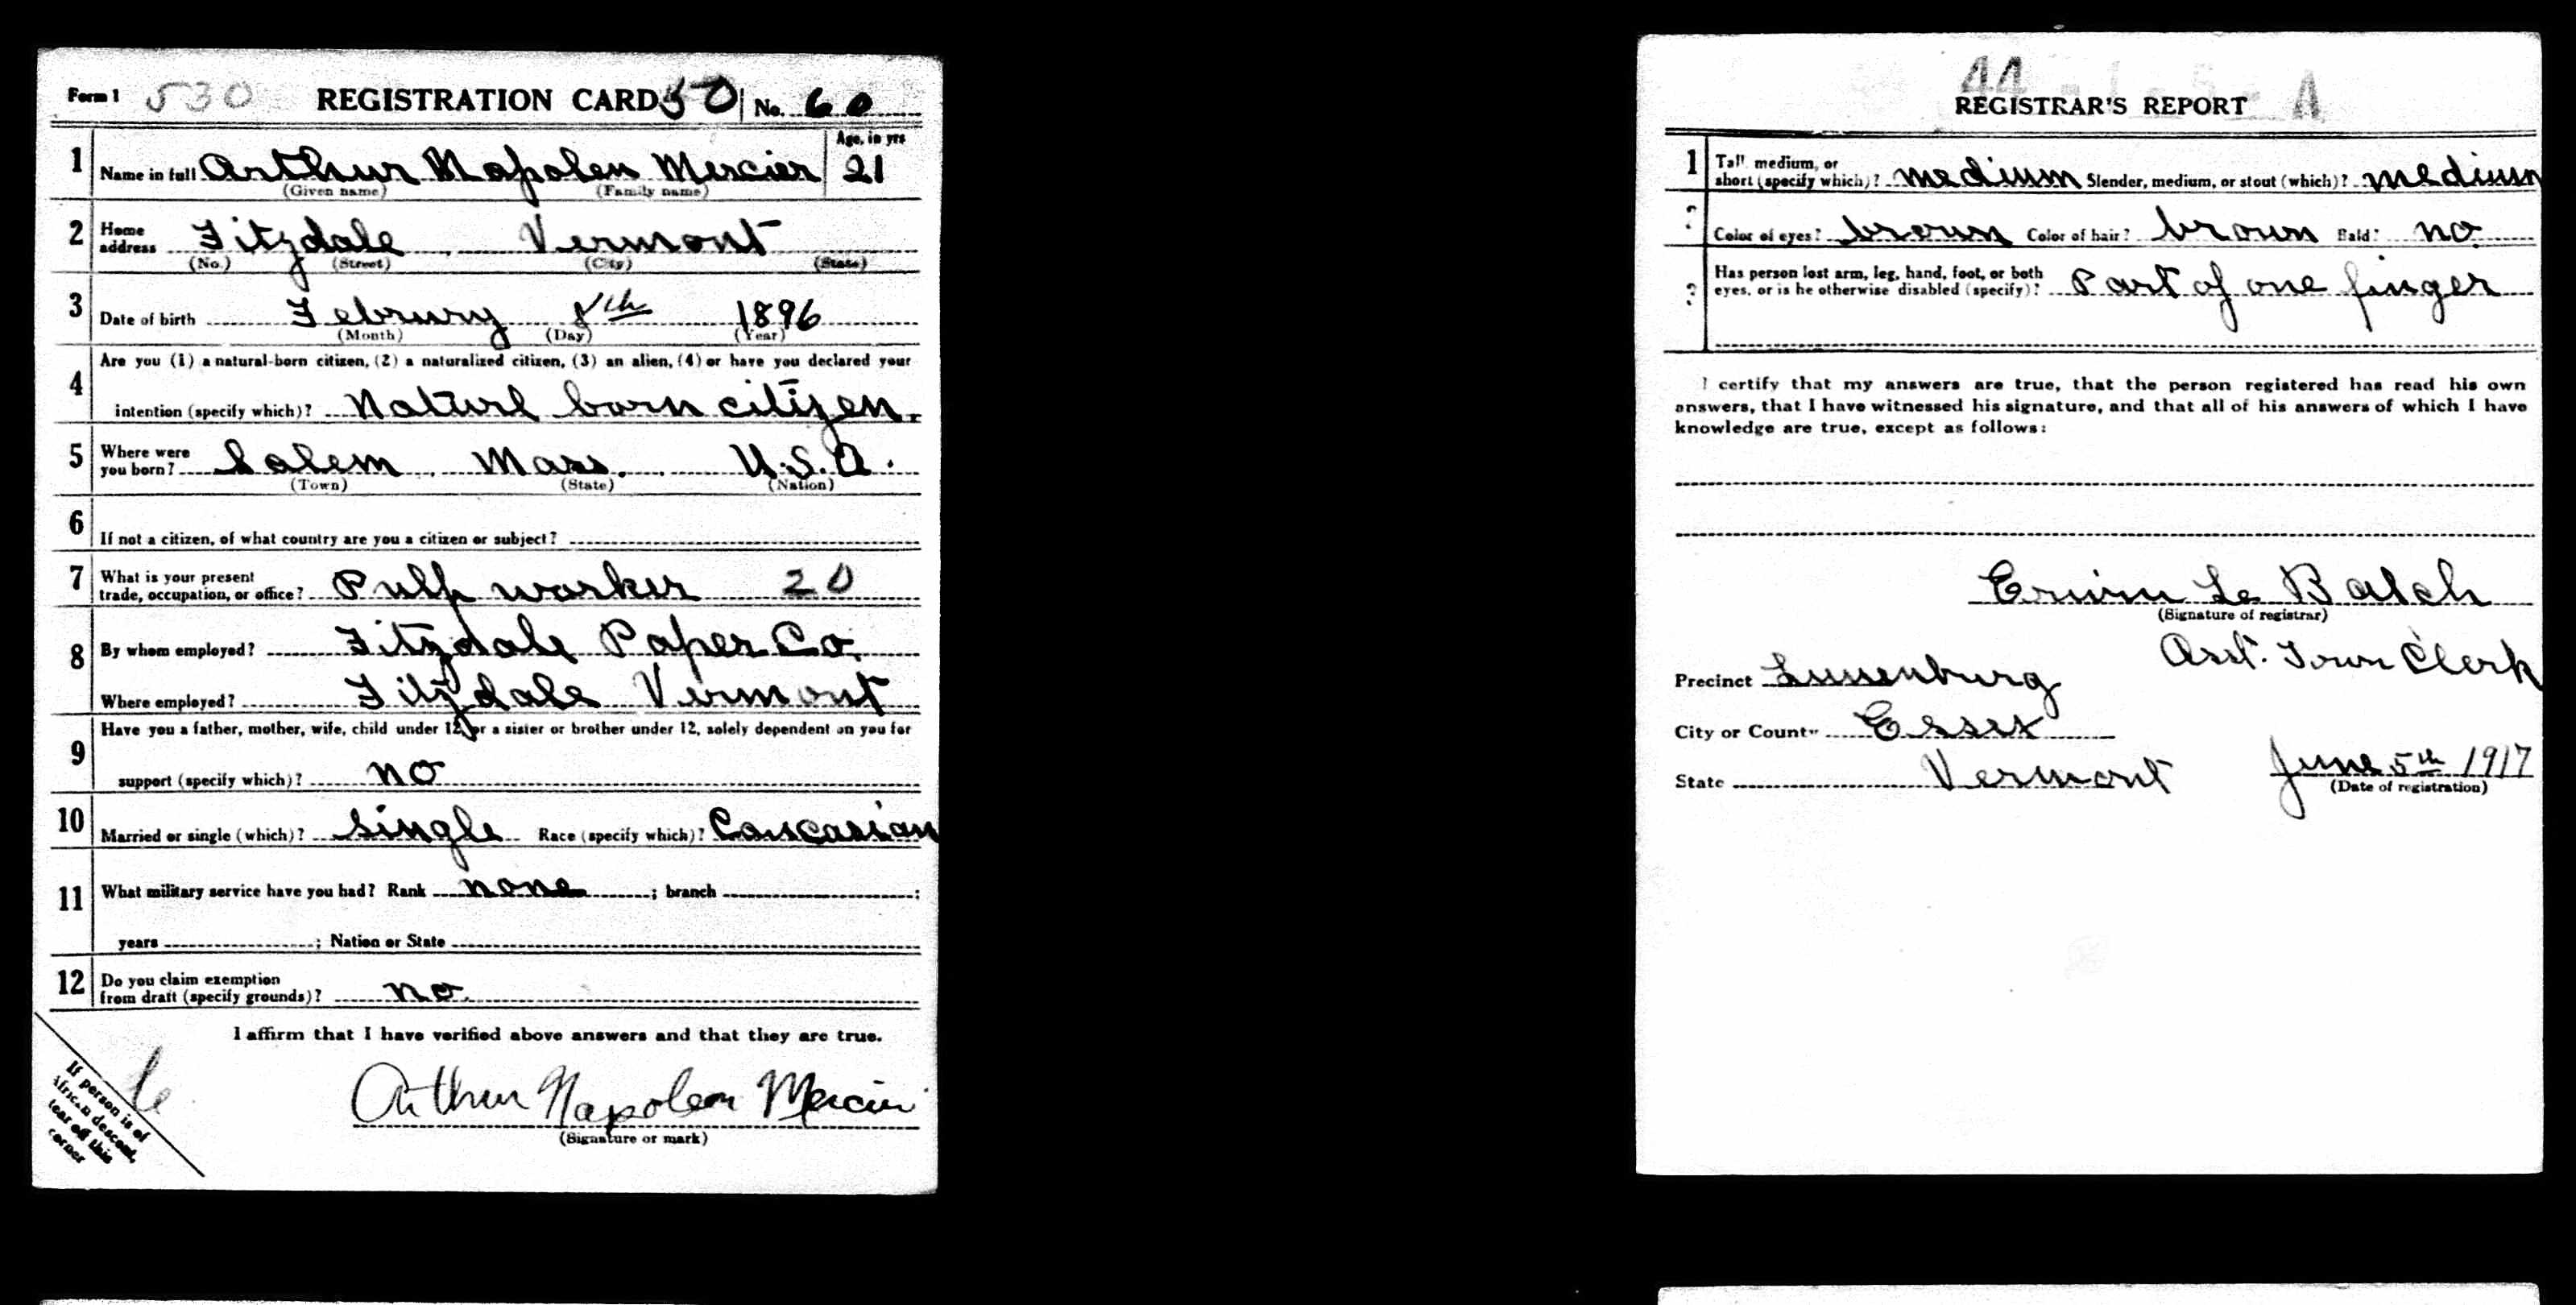 Form 1 530 REGISTRATION CARD 50 No. 60
1 Name in full Arthur Napolen Mercier Age, in yrs 21
(Given name) (Family name)
2 Home address Fitzdale, Vermont
(No.) (Street) (City) (State)
3 Date of birth Februry 8th 1896
(Month) (Day) (Year)
4 Are you (1) a natural-born citizen, (2) a naturalized citizen, (3) an alien, (4) or have you declared your
intention (specify which)? Naturl born citizen.
5 Where were you born? Salem, Mass. U.S.A.
(Town) (State) (Nation)
6 If not a citizen, of what country are you a citizen or subject?
7 What is your present trade, occupation, or office? Pulp worker 20
8 By whom employed? Fitzdale Paper Co.
Where employed? Fitzdale Vermont
9 Have you a father, mother, wife, child under 12, or a sister or brother under 12, solely dependent on you for
support (specify which)? no
10 Married or single (which)? single Race (specify which)? Caucasian
11 What military service have you had? Rank none ; branch ;
years ; Nation or State
12 Do you claim exemption from draft (specify grounds)? no.
I affirm that I have verified above answers and that they are true.
Arthur Napoleon Mercier
(Signature or mark)
If person is of
African descent,
tear off this
corner
44 - 1 - 5 - A
REGISTRAR'S REPORT
1 Tall, medium, or short (specify which)? medium Slender, medium, or stout (which)? medium
2 Color of eyes? brown Color of hair? brown Bald? no.
3 Has person lost arm, leg, hand, foot, or both
eyes, or is he otherwise disabled (specify)? Part of one finger
I certify that my answers are true, that the person registered has read his own
answers, that I have witnessed his signature, and that all of his answers of which I have
knowledge are true, except as follows:
Erwin Le Balch
(Signature of registrar)
Asst. Town Clerk
Precinct Lunenburg
City or County Essex
State Vermont June 5th 1917
(Date of registration)